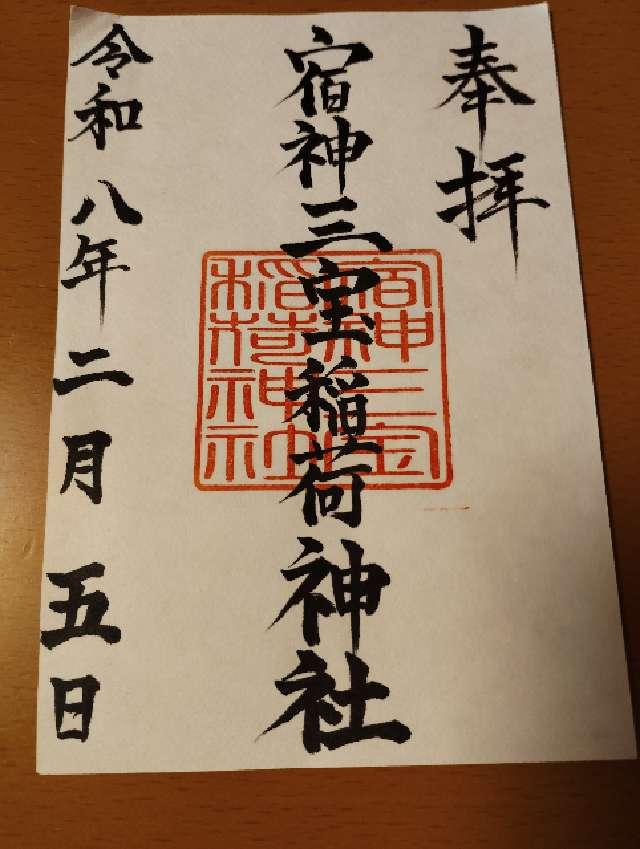 奉拝
宿神三宝稲荷神社
宿神三宝
稲荷神社
令和八年二月五日